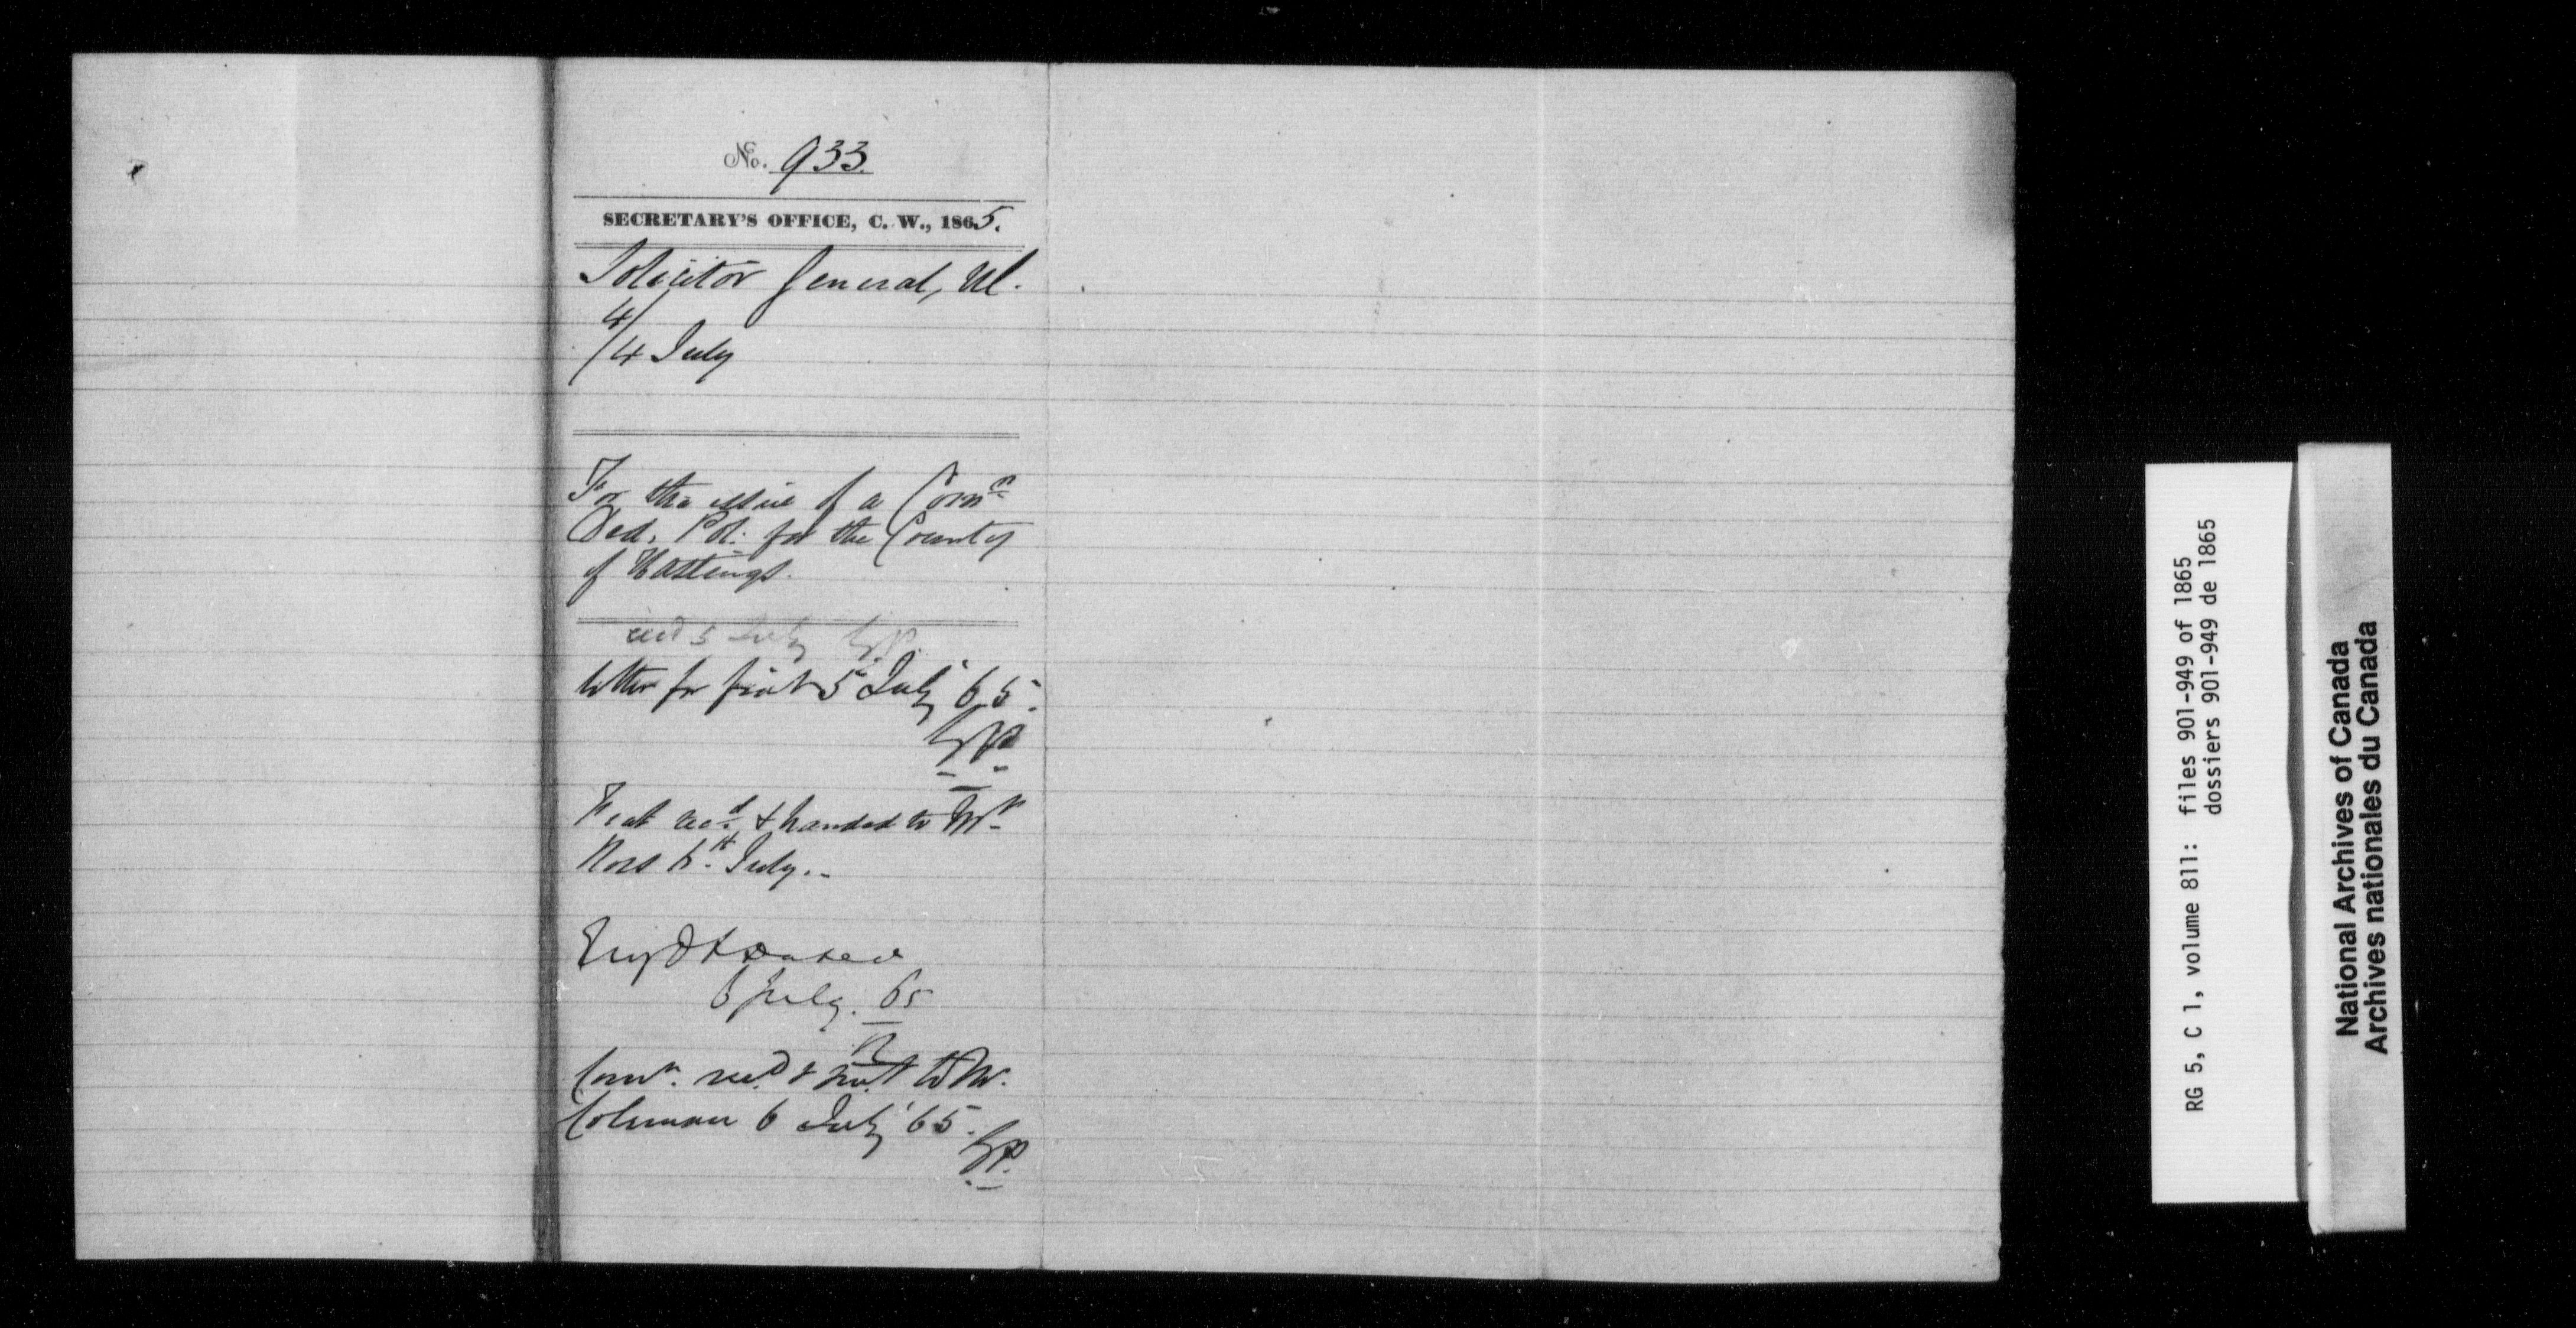 No. 933.
SECRETARY'S OFFICE, C. W., 1865.
Solicitor General, Ul.
4/
/4 July
For the issue of a Comn
Ded. Pot: for the County
of Hastings.
recd 5 July
letter for fiat 5 July '65.
Fiat recd & handed to Mr
Ross 6th July.
6 July. 65
Comn. recd & sent to Mr.
Coleman 6 July '65.
RG 5, C 1, volume 811: files 901-949 of 1865
dossiers 901-949 de 1865
National Archives of Canada
Archives nationales du Canada